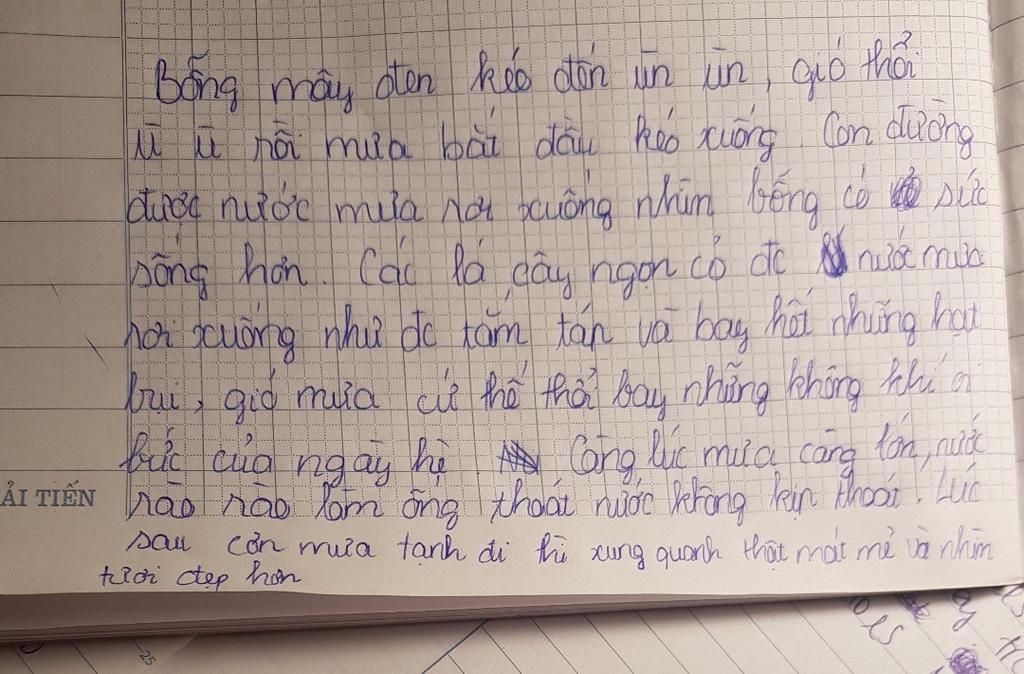 Bỗng mây đen kéo đến ùn ùn, gió thổi
ù ù rồi mưa bắt đầu kéo xuống. Con đường
được nước mưa rơi xuống nhìn bỗng có sức
sống hơn. Các lá cây ngọn cỏ đc nước mưa
rơi xuống như đc tắm táp và bay hết những hạt
bụi, gió mưa cứ thế thổi bay những không khí oi
bức của ngày hè. Càng lúc mưa càng lớn, nước
rào rào làm ống thoát nước không kịp thoát. Lúc
ẢI TIẾN
sau cơn mưa tạnh đi thì xung quanh thật mát mẻ và nhìn
tươi đẹp hơn
25